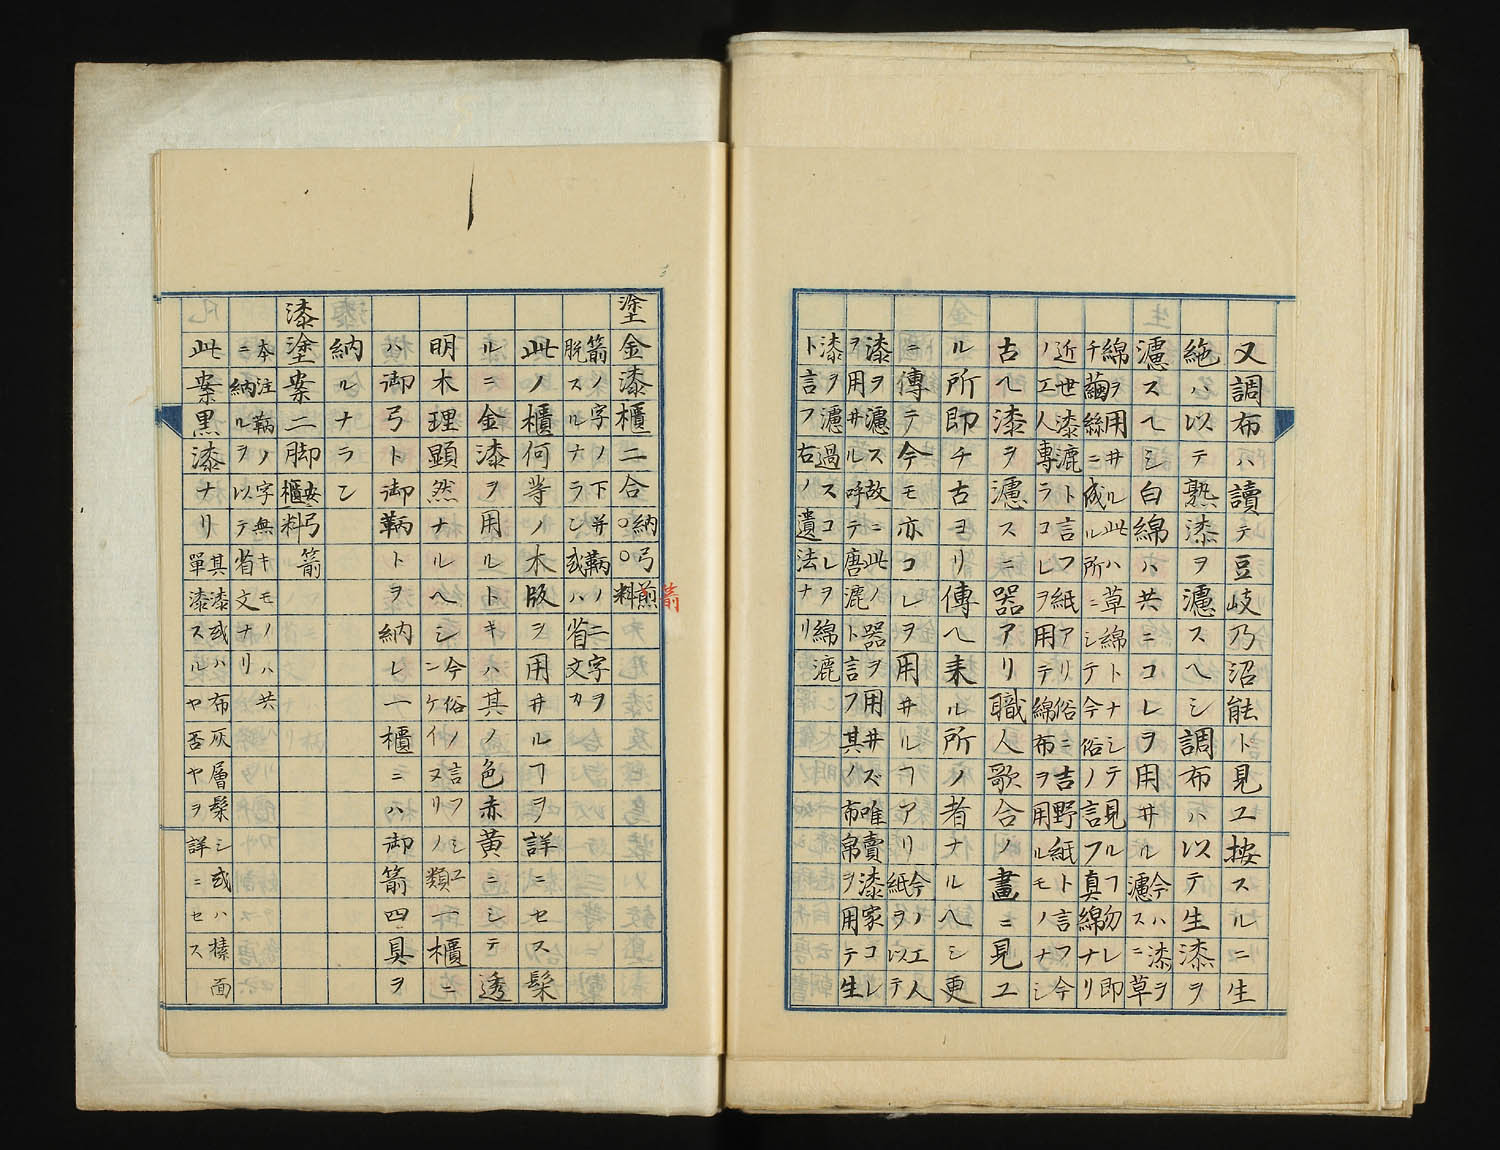 又調布ハ讀テ豆岐乃沼能ト見エ按スルニ生
絁ハ以テ熟漆ヲ濾スヘシ調布ハ以テ生漆ヲ
濾スヘシ白綿ハ共ニコレヲ用井ル今ハ漆ヲ
濾スニ草
綿ヲ用井ル此ハ草綿トナシテ見ルフ勿レ即
チ繭絲ニ成ル所ニシテ今俗ノ言フ真綿ナリ
近世漆漉ト言フ紙アリ俗ニ吉野紙ト言フ今
ノ工人專ラコレヲ用テ綿布ヲ用ルモノナシ
古ヘ漆ヲ濾スニ器アリ職人歌合ノ畫ニ見エ
ル所即チ古ヨリ傳ヘ来ル所ノ者ナルヘシ更
ニ傳テ今モ亦コレヲ用井ルフアリ今ノ工人
紙ヲ以テ
漆ヲ濾ス故ニ此ノ器ヲ用井ズ唯賣漆家コレ
ヲ用井ル呼テ唐漉ト言フ其ノ布帛ヲ用テ生
漆ヲ濾過スコレヲ綿漉
ト言フ右ノ遺法ナリ
塗金漆櫃二合納弓煎
○○料
箭
箭ノ字ノ下并鞆ノ二字ヲ
脱スルナラン或ハ省文カ
此ノ櫃何等ノ木版ヲ用井ルフヲ詳ニセス髹
ルニ金漆ヲ用ルトキハ其ノ色赤黄ニシテ透
明木理顯然ナルヘシ今俗ノ言フシユ
ンケイヌリノ類一櫃ニ
ハ御弓ト御鞆トヲ納レ一櫃ニハ御箭四具ヲ
納ルナラン
漆塗案二脚安弓箭
櫃料
本注鞆ノ字無キモノハ共
ニ納ルヲ以テ省文ナリ
此案黒漆ナリ其漆或ハ布灰層髹シ或ハ樣面
單漆スルヤ否ヤヲ詳ニセス